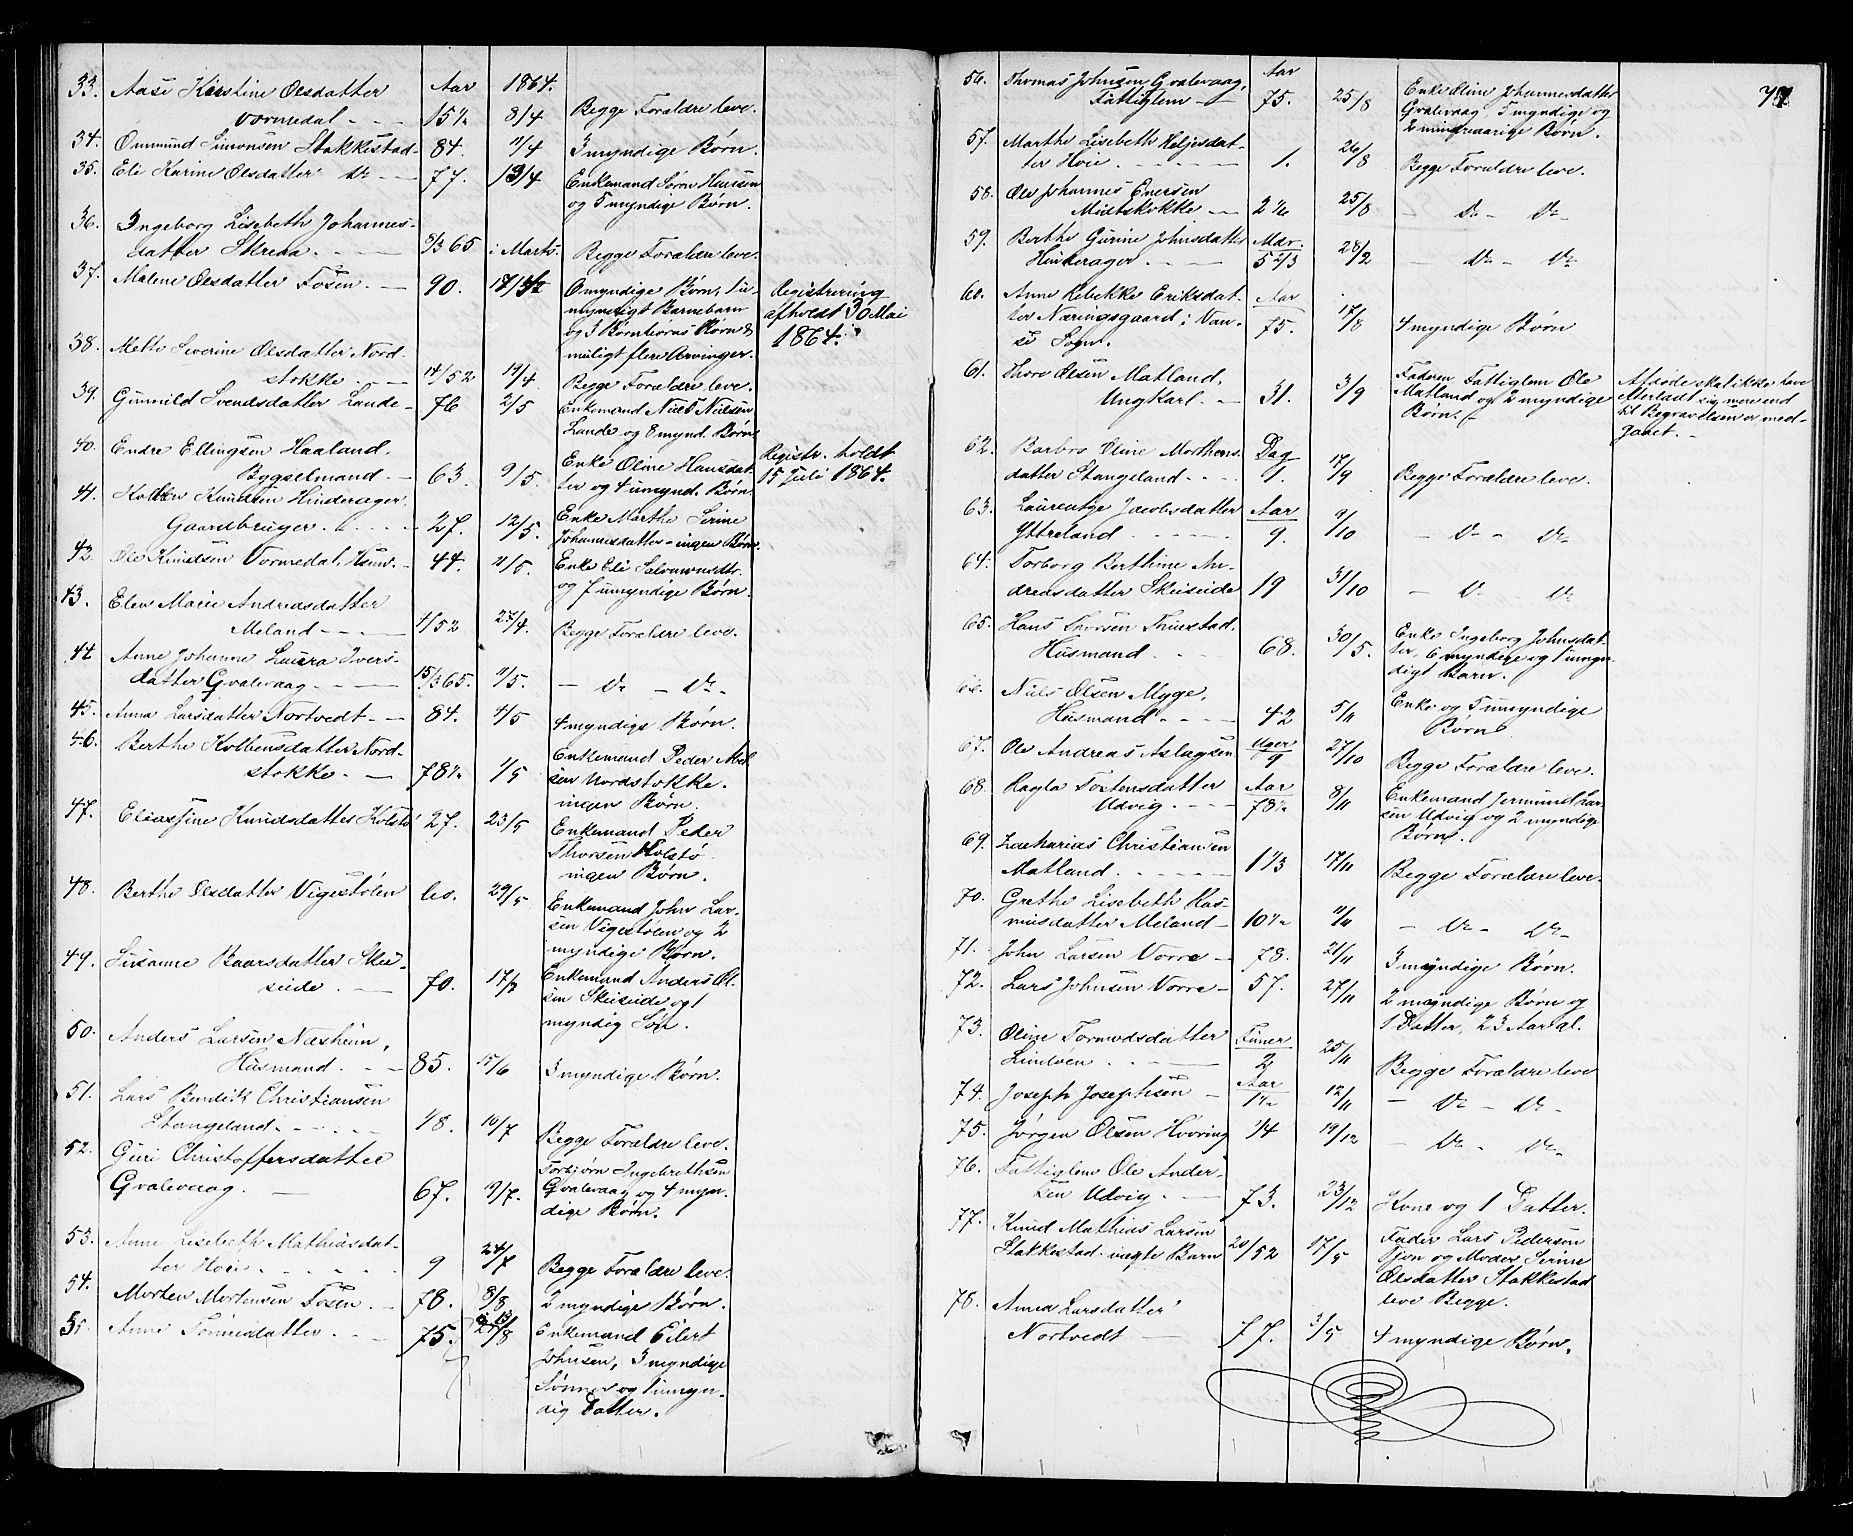 33. Aase Kirstine Olsdatter Aar 1864.
Vormedal - - 15 1/2 8/4 Begge Forældre leve.
34. Ommund Simonsen Stakkestad - 84. 11/4 3 myndige Børn.
35. Eli Karine Olsdatter Do - 77. 13/4 Enkemand Sørn Hansen
og 5 myndige Børn.
36. Ingeborg Lisebeth Johannes-
datter Skreda. - - 8/365 i Marts. Begge Forældre leve.
37. Malene Olsdatter Fosen. - 90. Omyndige Børn, 1 u- Registrering
myndigt Barnebarn afholdt 30 Mai
og 3 Børnebørns Børn & 1864.
muligt flere Arvinger.
38. Mette Severine Olsdatter Nord-
stokke. - 14/52 19/4. Begge Forældre leve.
39. Gunnild Svendsdatter Lande - 76 2/5 Enkemand Niels Nielsen
Lande og 8 mynd. Børn
40. Endre Ellingsen Haaland. Registr. holdt
Bygselmand - 63. 9/5. Enke Oline Hansdat- 15 Juli 1864.
ter og 4 umynd. Børn
41. Knudsen Hinderager.
Gaardbruger. - - 27. 12/5. Enke Marthe Serine
Johannesdatter - ingen Børn.
42. Ole Knudsen Vormedal, Huusm. - 44. 2/5. Enke Eli Salomonsdtr.
og 7 umyndige Børn.
43. Elen Marie Andreasdatter
Meland - - 4/52 27/4. Begge Forældre leve.
44. Anne Johanne Laura Ivers-
datter Gvalevaag - - 15/365. 11/5. - Do - Do -
45. Anna Larsdatter Nortvedt - 84. 4/5 4 myndige Børn.
46. Berthe Kolbensdatter Nord-
stokke. - 78 1/2 1/5 Enkemand Peder Abel-
sen Nordstokke.
ingen Børn.
47. Eliassine Knudsdatter Kolstø 27. 23/5 Enkemand Peder
Thorsen Kolstø
ingen Børn.
48. Berthe Olsdatter Vigestølen 60. 29/5 Enkemand John Lar-
sen Vigestølen og 2
myndige Børn.
49. Susanne Baarsdatter Skei-
seide. - 70. 17/2 Enkemand Anders Ol-
sen Skeiseide og 1
myndig Søn.
50. Anders Larsen Næsheim,
Huusmand. - - 85. 15/6 3 myndige Børn.
51. Lars Bendik Christiansen
Stangeland - - - 48. 10/7 Begge Forældre leve.
52. Guri Christoffersdatter
Gvalevaag. - 67. 9/7. Torbjørn Ingebrethsen
Gvalevaag og 4 myn-
dige Børn.
53. Anne Lisebeth Mathiasdat-
ter Hoie. - - - 9 24/7 Begge Forældre leve.
54. Morten Mortensen Fosen. - 78. 8/8 2 myndige Børn.
55. Anne Tønnesdatter. - - 75. Enkemand Eilert
Johnsen, 3 myndige
Sønner og 1 umyn-
dig Datter.
56. Thomas Johnsen Gvalevaag, Aar
Fattiglem - 75. 25/8 Enke Oline Johannesdatter
Gvalevaag, 5 myndige og
2 mindreaarige Børn.
57. Marthe Lisebeth Heljesdat-
ter Hoie. - - - 1. 26/8 Begge Forældre leve.
58. Ole Johannes Enersen
Midtskokke - 2 1/6 25/8 - Do - Do -
59. Berthe Gurine Johnsdatter Mdr.
Hinderager - - 5 2/3 28/2 - Do - Do
60. Anne Rebekke Eriksdat- Aar
ter Næringsgaard i Van- 75. 17/8 4 myndige Børn
se Sogn.
61. Thore Olsen Matland,
Ungkarl - - 31. 3/9 Faderen Fattiglem Ole
Matland og 2 myndige
Børn.
Afdøde skal ikke have
Efterladt sig mere end
til Begravelsen er med-
gaaet. -
62. Barbro Oline Morthens- Dag
datter Stangeland - - - 1. 17/9 Begge Forældre leve.
63. Laurentze Jacobsdatter Aar
Yttreland - - 9. 9/10 - Do - Do
64. Torborg Berthine An-
dreasdatter Skeiseide 19 31/10 - Do - Do
65. Hans Thorsen
Huusmand. - - 68. 30/5. Enke Ingeborg Johnsdat-
ter, 6 myndige og 1 umyn-
digt Barn.
66. Niels Olsen Myge,
Huusmand - - - 42 5/11 Enke og 5 umyndige
Børn
67. Ole Andreas Aslagsen Uger
9 27/10 Begge Forældre leve.
68. Ragla Tostensdatter Aar
Udvig. - - - 78 1/2 8/11 Enkemand Jermund Lar-
sen Udvig og 2 myndige
Børn.
69. Zacharias Christiansen
Matland. - - - 1 1/3 17/11 Begge Forældre leve.
70. Grethe Lisebeth Ras-
musdatter Meland - 10 1/2 11/11 - Do - Do -
71. John Larsen Vorre - 78. 21/11 3 myndige Børn.
72. Lars Johnsen Vorre - 57. 27/11 2 myndige Børn og
1 Datter, 23 Aar gl.
73. Oline Tormodsdatter Timer
Lindoen - - 2 25/11 Begge Forældre leve
74. Joseph Josephsen - Aar
1 1/2 12/11 - Do - Do -
75. Jørgen Olsen Hvoring 1/4 19/12 - Do - Do -
76. Fattiglem Ole Ander-
sen Udvig. - 73. 23/12 Kone og 1 Datter.
77. Knud Mathias Larsen
Stakkestad - uægte Barn 20/52 17/5 Fader Lars Pedersen
og Moder Serine
Olsdatter Stakkestad
leve Begge.
78. Anna Larsdatter
Nortvedt - 77. 3/5 4 myndige Børn.